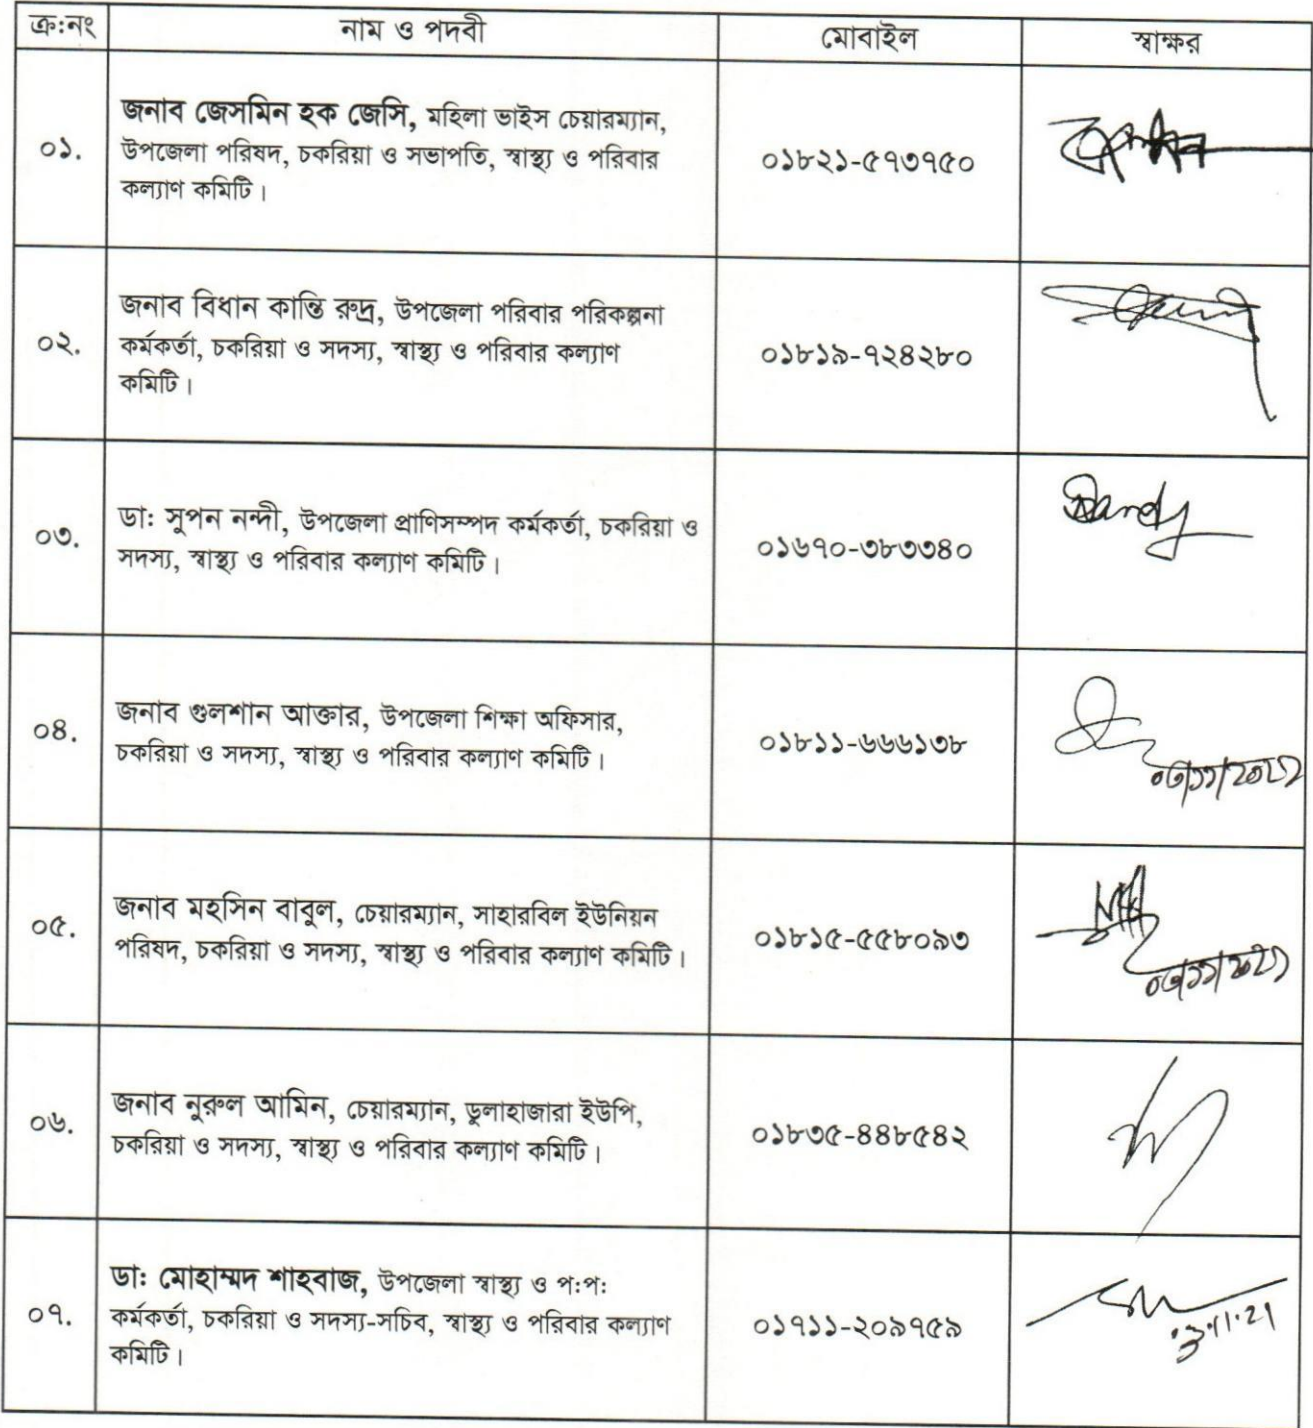 ক্র:নং নাম ও পদবী মোবাইল স্বাক্ষর
০১. জনাব জেসমিন হক জেসি, মহিলা ভাইস চেয়ারম্যান,
উপজেলা পরিষদ, চকরিয়া ও সভাপতি, স্বাস্থ্য ও পরিবার
কল্যাণ কমিটি। ০১৮২১-৫৭৩৭৫০
০২. জনাব বিধান কান্তি রুদ্র, উপজেলা পরিবার পরিকল্পনা
কর্মকর্তা, চকরিয়া ও সদস্য, স্বাস্থ্য ও পরিবার কল্যাণ
কমিটি। ০১৮১৯-৭২৪২৮০
০৩. ডা: সুপন নন্দী, উপজেলা প্রাণিসম্পদ কর্মকর্তা, চকরিয়া ও
সদস্য, স্বাস্থ্য ও পরিবার কল্যাণ কমিটি। ০১৬৭০-৩৮৩৩৪০
০৪. জনাব গুলশান আক্তার, উপজেলা শিক্ষা অফিসার,
চকরিয়া ও সদস্য, স্বাস্থ্য ও পরিবার কল্যাণ কমিটি। ০১৮১১-৬৬৬১৩৮
০৩/১১/২০২১
০৫. জনাব মহসিন বাবুল, চেয়ারম্যান, সাহারবিল ইউনিয়ন
পরিষদ, চকরিয়া ও সদস্য, স্বাস্থ্য ও পরিবার কল্যাণ কমিটি। ০১৮১৫-৫৫৮০৯৩
০৩/১১/২০২১
০৬. জনাব নুরুল আমিন, চেয়ারম্যান, ডুলাহাজারা ইউপি,
চকরিয়া ও সদস্য, স্বাস্থ্য ও পরিবার কল্যাণ কমিটি। ০১৮৩৫-৪৪৮৫৪২
০৭. ডা: মোহাম্মদ শাহবাজ, উপজেলা স্বাস্থ্য ও প:প:
কর্মকর্তা, চকরিয়া ও সদস্য-সচিব, স্বাস্থ্য ও পরিবার কল্যাণ
কমিটি। ০১৭১১-২০৯৭৫৯
3.11.21